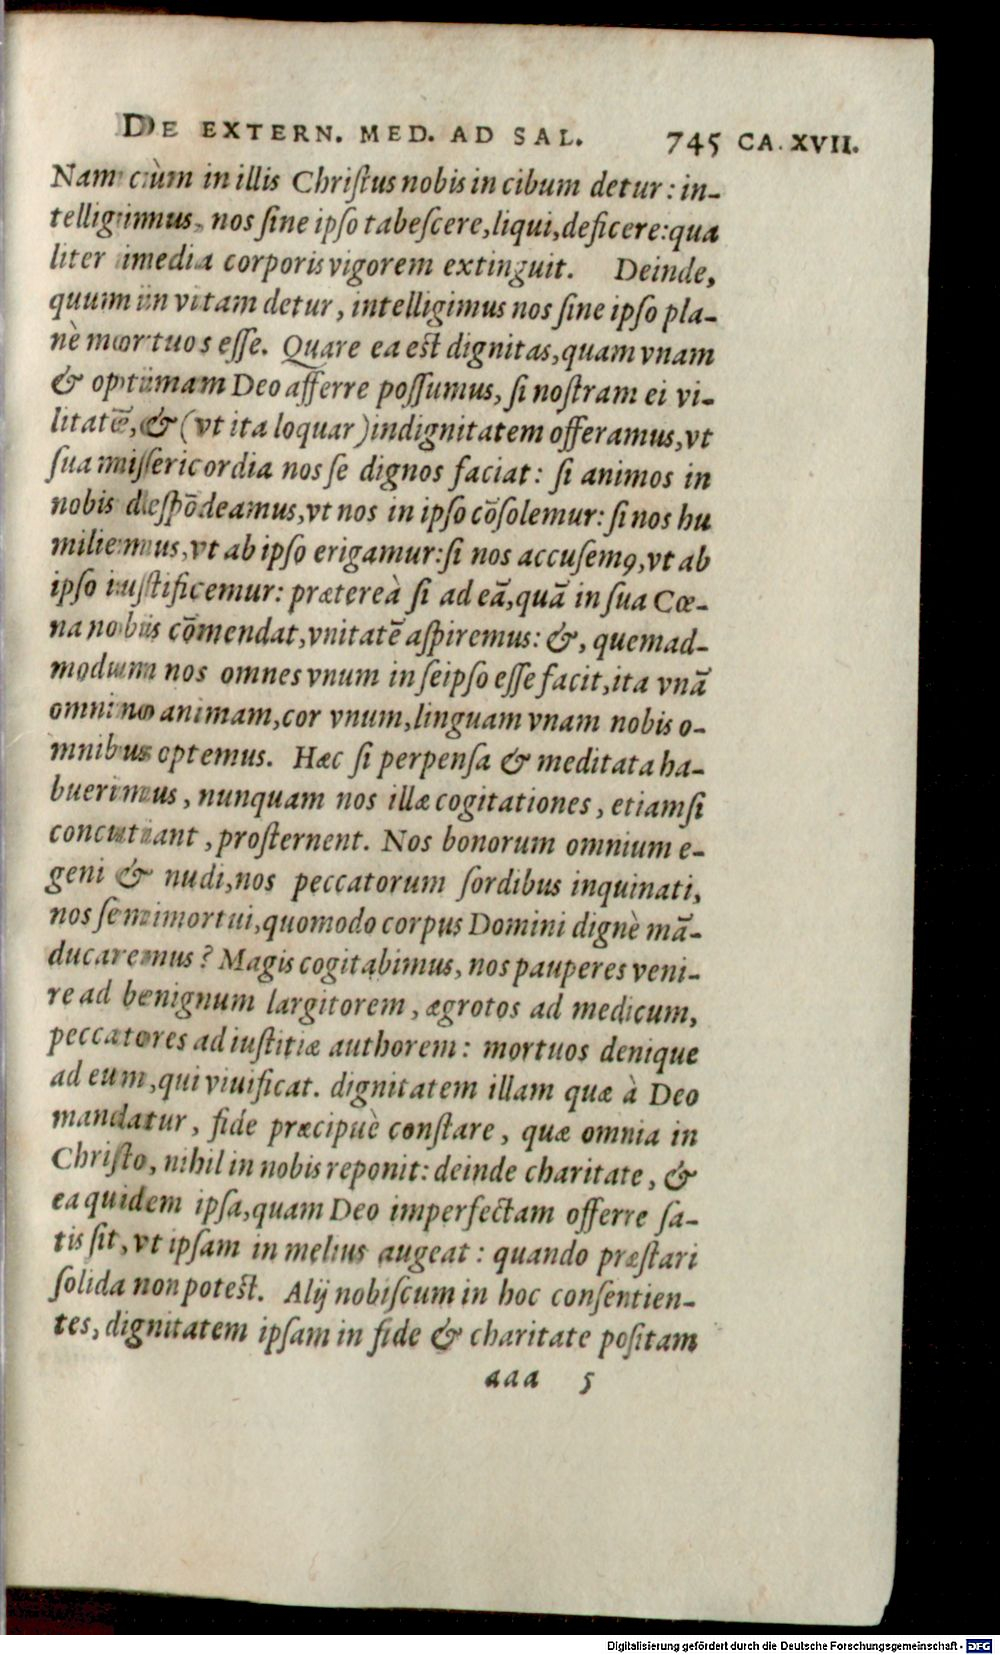 DE EXTERN. MED. AD SAL. 745 CA. XVII.
Nam cùm in illis Chriſtus nobis in cibum detur: in-
telligimus, nos ſine ipſo tabeſcere, liqui, deficere: qua
liter inedia corporis vigorem extinguit. Deinde,
quum in vitam detur, intelligimus nos ſine ipſo pla-
nè mortuos eſſe. Quare ea est dignitas, quam vnam
& optimam Deo afferre poſſumus, ſi noſtram ei vi-
litatē, & (vt ita loquar) indignitatem offeramus, vt
ſua miſericordia nos ſe dignos faciat: ſi animos in
nobis deſpōdeamus, vt nos in ipſo cōſolemur: ſi nos hu
miliemus, vt ab ipſo erigamur: ſi nos accuſemꝰ, vt ab
ipſo iuſtificemur: prætereà ſi ad eā, quā in ſua Cœ-
na nobis cōmendat, vnitatē aſpiremus: &, quemad-
modum nos omnes vnum in ſeipſo eſſe facit, ita vnā
omnino animam, cor vnum, linguam vnam nobis o-
mnibus optemus. Hæc ſi perpenſa & meditata ha-
buerimus, nunquam nos illæ cogitationes, etiamſi
concutiant, proſternent. Nos bonorum omnium e-
geni & nudi, nos peccatorum ſordibus inquinati,
nos ſemimortui, quomodo corpus Domini dignè mā-
ducaremus? Magis cogitabimus, nos pauperes veni-
re ad benignum largitorem, ægrotos ad medicum,
peccatores ad iuſtitiæ authorem: mortuos denique
ad eum, qui viuificat. dignitatem illam quæ à Deo
mandatur, fide præcipuè conſtare, quæ omnia in
Chriſto, nihil in nobis reponit: deinde charitate, &
ea quidem ipſa, quam Deo imperfectam offerre ſa-
tis ſit, vt ipſam in melius augeat: quando præſtari
ſolida non potest. Alij nobiſcum in hoc conſentien-
tes, dignitatem ipſam in fide & charitate poſitam
aaa 5
Digitalisierung gefördert durch die Deutsche Forschungsgemeinschaft - DFG